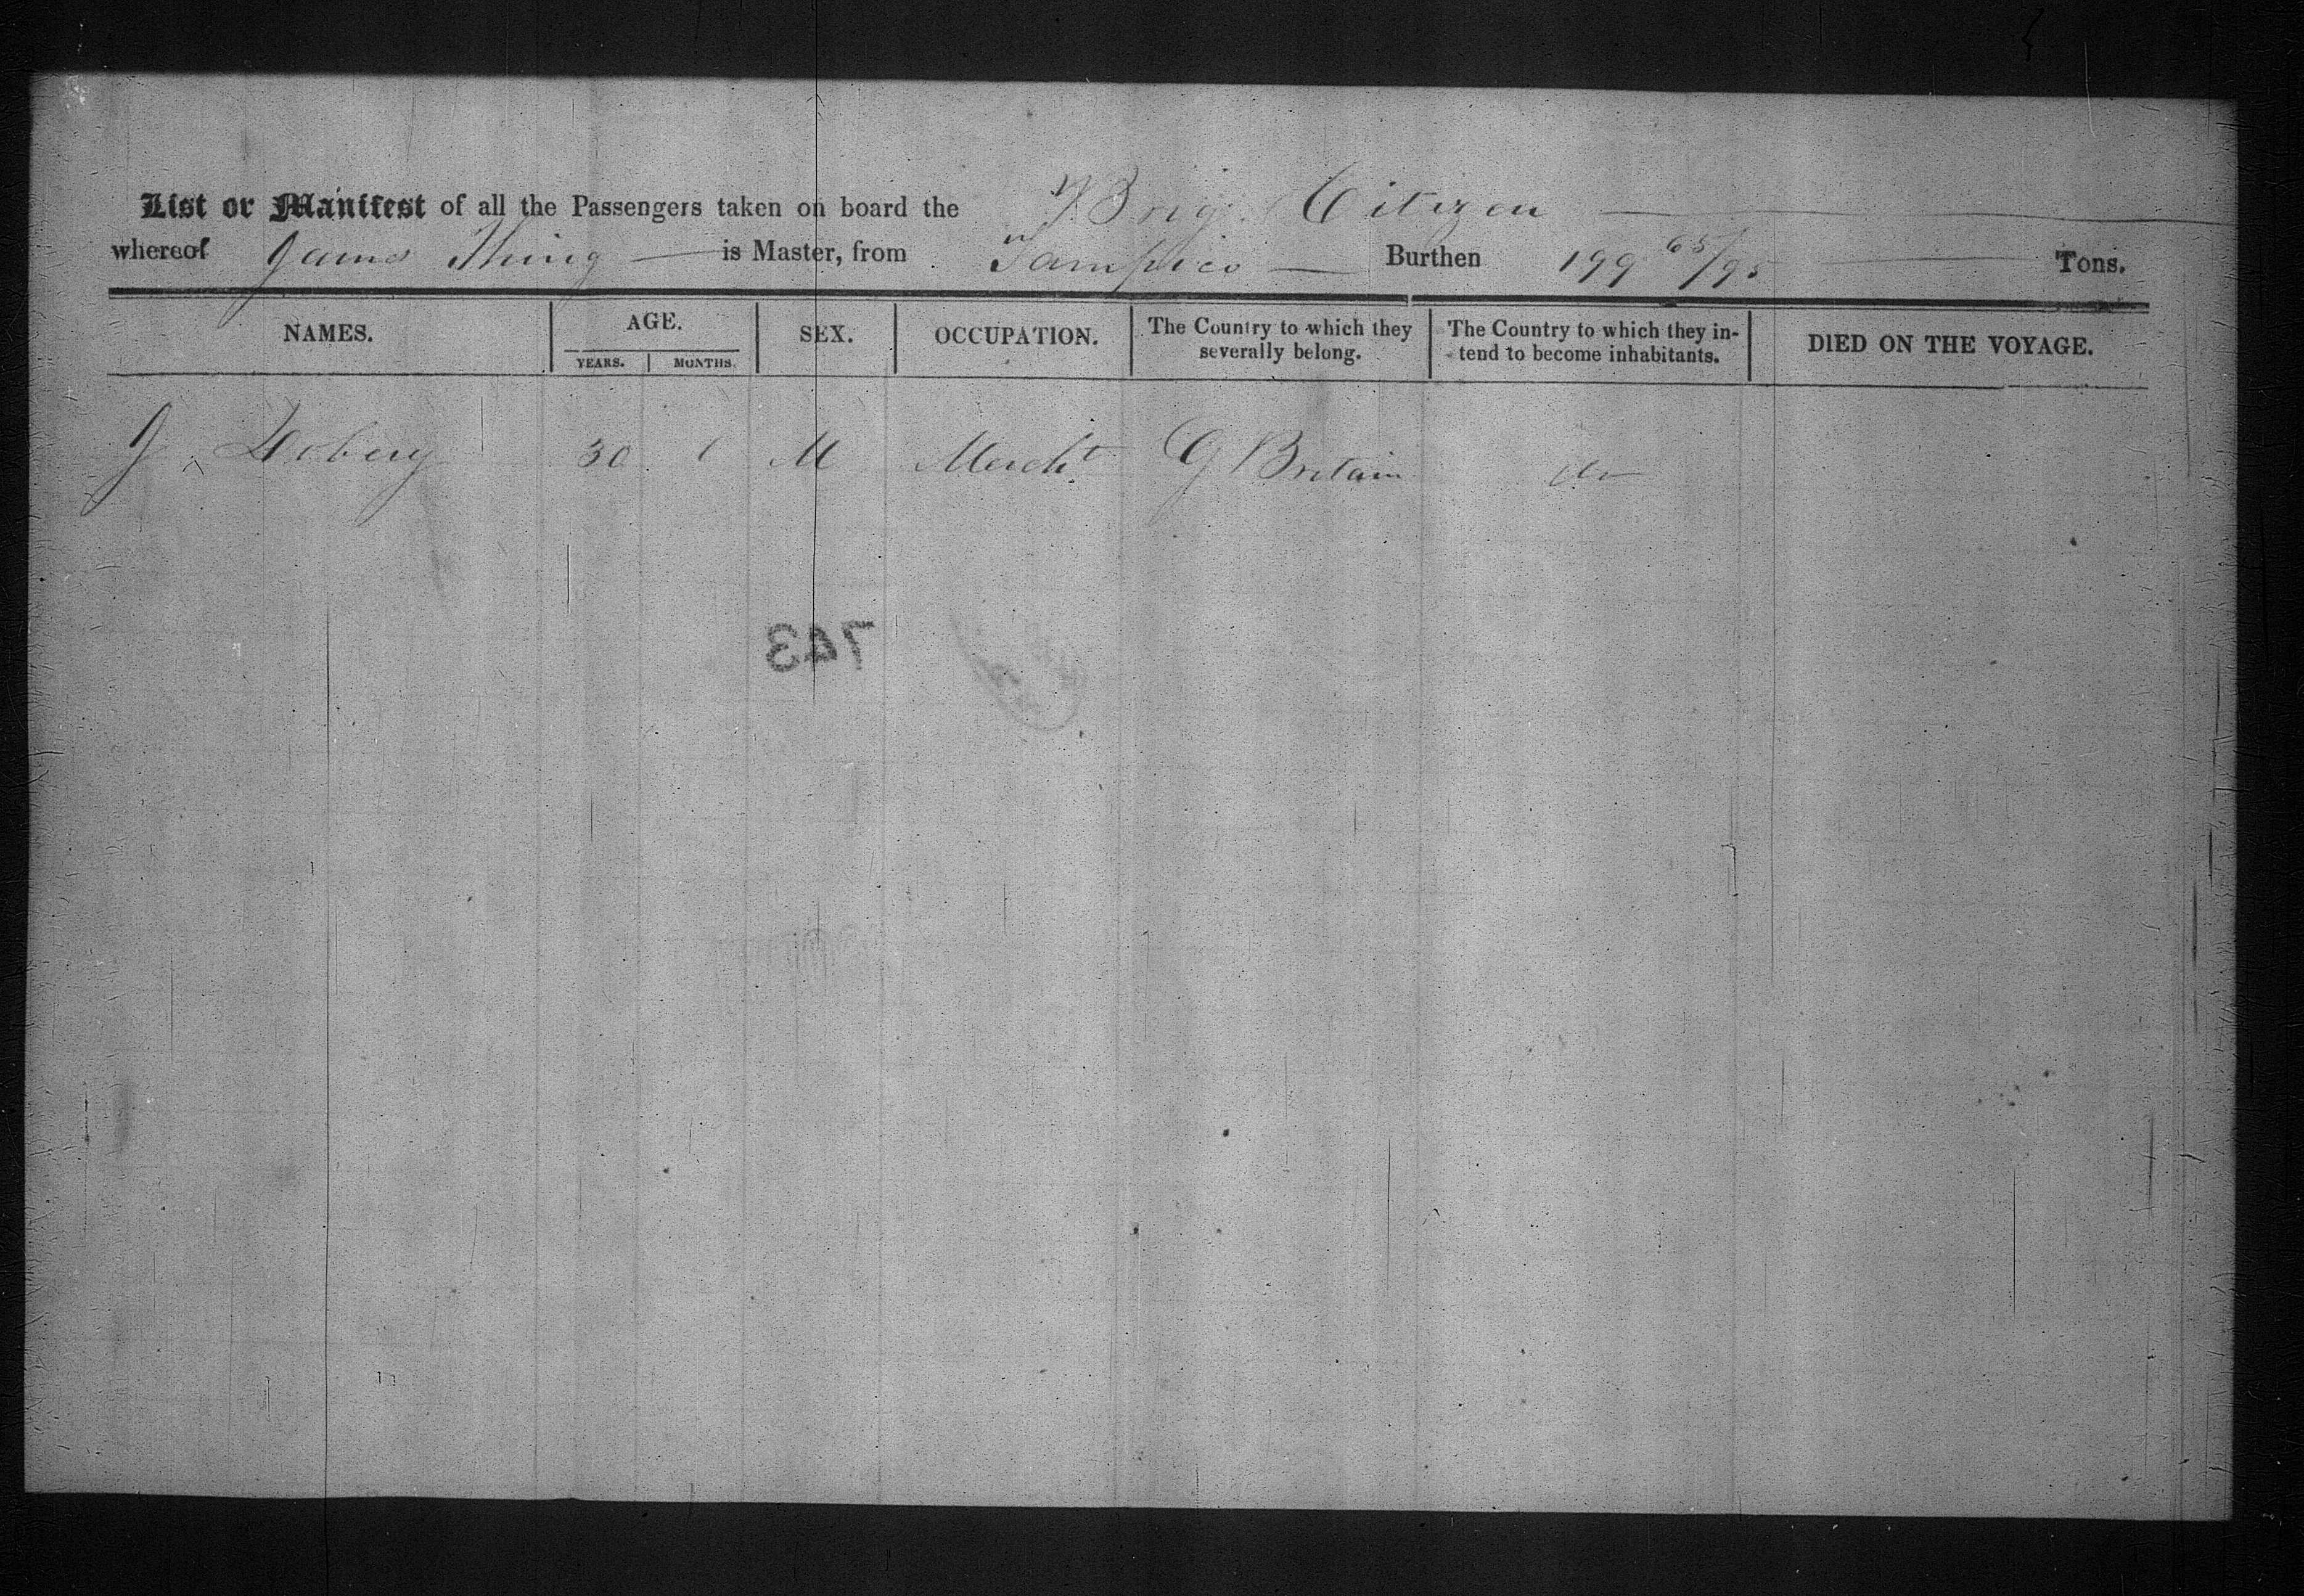 List or Manifest of all the Passengers taken on board the Brig Citizen
whereof James Thing is Master, from Tampico Burthen 199 65/95 Tons.
NAMES. AGE. SEX. OCCUPATION. The Country to which they severally belong. The Country to which they in-tend to become inhabitants. DIED ON THE VOYAGE.
YEARS. MONTHS.
J 30 M Mercht G Britain do
743